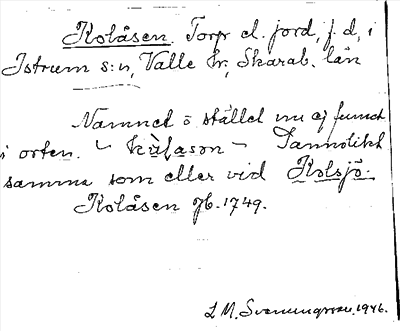 Kolåsen. Torp el. jord, f. d., i
Istrum s:n, Valle hr, Skarab. län
Namnet o stället nu ej funnet
i orten. – – Sannolikt
samma som eller vid Kolsjö.
Kolåsen Jb. 1749.
L M. Svenungsson, 1946.